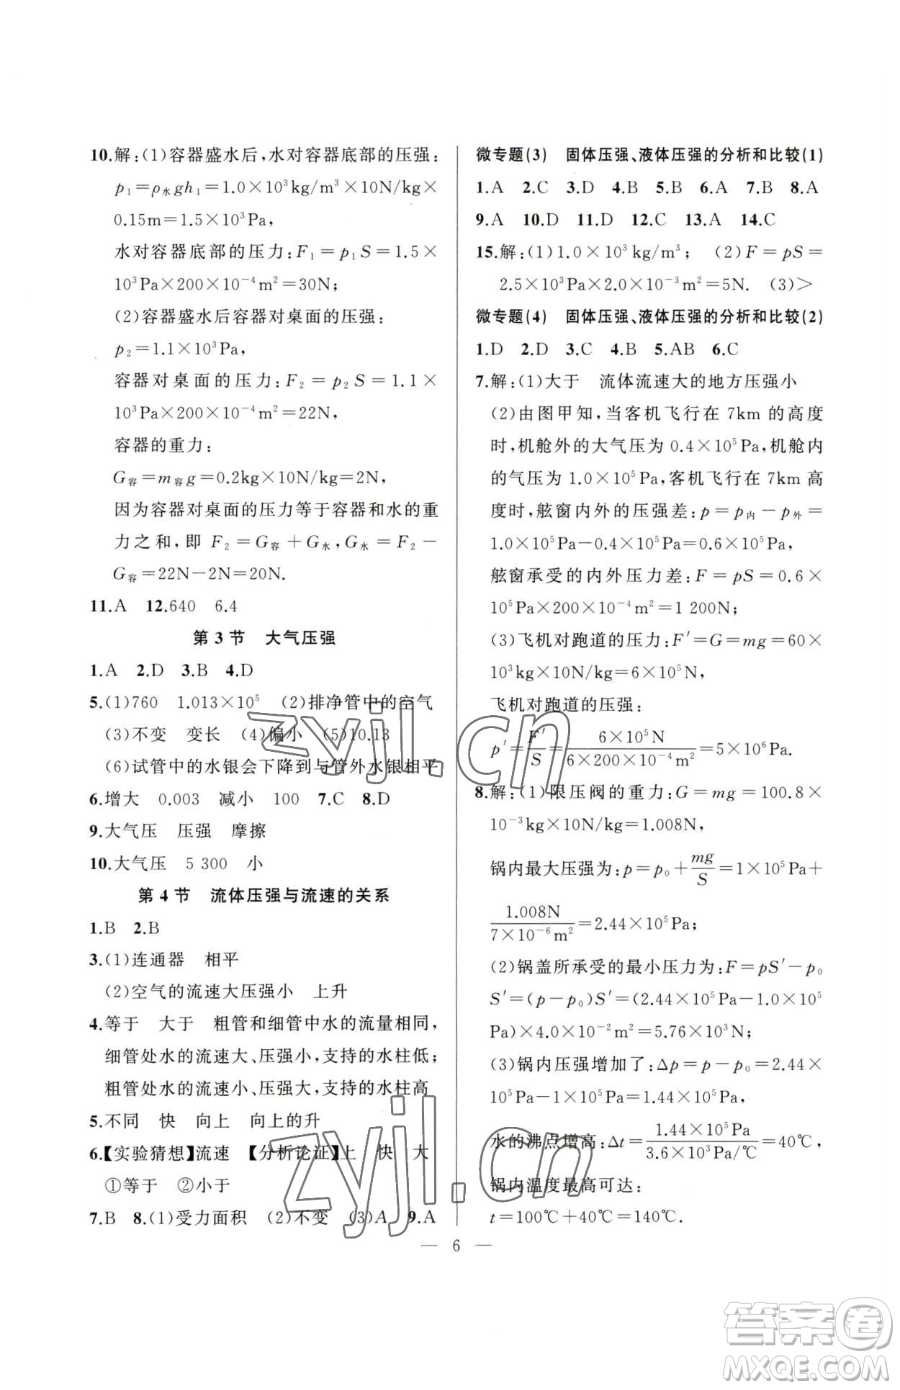 10.解:(1)容器盛水后,水对容器底部的压强:
p₁=ρ水gh₁=1.0×10³kg/m³×10N/kg×
0.15m=1.5×10³Pa,
水对容器底部的压力:F₁=p₁S=1.5×
10³Pa×200×10⁻⁴m²=30N;
(2)容器盛水后容器对桌面的压强:
p₂=1.1×10³Pa,
容器对桌面的压力:F₂=p₂S=1.1×
10³Pa×200×10⁻⁴m²=22N,
容器的重力:
G容=m容g=0.2kg×10N/kg=2N,
因为容器对桌面的压力等于容器和水的重
力之和,即 F₂=G容+G水,G水=F₂-
G容=22N-2N=20N.
11.A 12.640 6.4
第3节 大气压强
1.A 2.D 3.B 4.D
5.(1)760 1.013×10⁵ (2)排净管中的空气
(3)不变 变长 (4)偏小 (5)10.13
(6)试管中的水银会下降到与管外水银相平
6.增大 0.003 减小 100 7.C 8.D
9.大气压 压强 摩擦
10.大气压 5 300 小
第4节 流体压强与流速的关系
1.B 2.B
3.(1)连通器 相平
(2)空气的流速大压强小 上升
4.等于 大于 粗管和细管中水的流量相同,
细管处水的流速大、压强小,支持的水柱低;
粗管处水的流速小、压强大,支持的水柱高
5.不同 快 向上 向上的升
6.【实验猜想】流速 【分析论证】上 快 大
①等于 ②小于
7.B 8.(1)受力面积 (2)不变 (3)A 9.A
微专题(3) 固体压强、液体压强的分析和比较(1)
1.A 2.C 3.D 4.B 5.B 6.A 7.B 8.A
9.A 10.D 11.D 12.C 13.A 14.C
15.解:(1)1.0×10³kg/m³; (2)F=pS=
2.5×10³Pa×2.0×10⁻³m²=5N. (3)>
微专题(4) 固体压强、液体压强的分析和比较(2)
1.D 2.D 3.C 4.B 5.AB 6.C
7.解:(1)大于 流体流速大的地方压强小
(2)由图甲知,当客机飞行在7km的高度
时,机舱外的大气压为0.4×10⁵Pa,机舱内
的气压为1.0×10⁵Pa,客机飞行在7km高
度时,舷窗内外的压强差:p=p内-p外=
1.0×10⁵Pa-0.4×10⁵Pa=0.6×10⁵Pa,
舷窗承受的内外压力差:F=pS=0.6×
10⁵Pa×200×10⁻⁴m²=1 200N;
(3)飞机对跑道的压力:F′=G=mg=60×
10³kg×10N/kg=6×10⁵N,
飞机对跑道的压强:
p′=F′/S=6×10⁵N/(6×200×10⁻⁴m²)=5×10⁶Pa.
8.解:(1)限压阀的重力:G=mg=100.8×
10⁻³kg×10N/kg=1.008N,
锅内最大压强为:p=p₀+mg/S=1×10⁵Pa+
1.008N/(7×10⁻⁶m²)=2.44×10⁵Pa;
(2)锅盖所承受的最小压力为:F=pS′-p₀
S′=(p-p₀)S′=(2.44×10⁵Pa-1×10⁵
Pa)×4.0×10⁻²m²=5.76×10³N;
(3)锅内压强增加了:Δp=p-p₀=2.44×
10⁵Pa-1×10⁵Pa=1.44×10⁵Pa,
水的沸点增高:Δt=1.44×10⁵Pa/(3.6×10³Pa/℃)=40℃,
锅内温度最高可达:
t=100℃+40℃=140℃.
— 6 —
zyjl.cn
zyjl.cn
答案圈
MXQE.COM